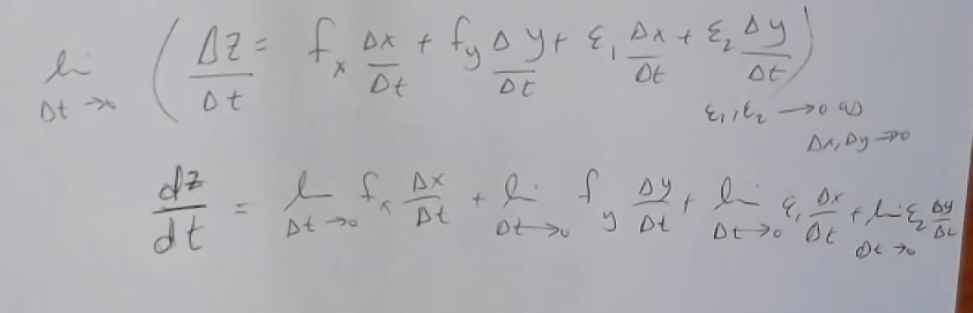 lim Δt→0 ( Δz/Δt = f_x Δx/Δt + f_y Δy/Δt + ε₁ Δx/Δt + ε₂ Δy/Δt )
ε₁, ε₂ → 0 as
Δx, Δy → 0
dz/dt = lim Δt→0 f_x Δx/Δt + lim Δt→0 f_y Δy/Δt + lim Δt→0 ε₁ Δx/Δt + lim Δt→0 ε₂ Δy/Δt